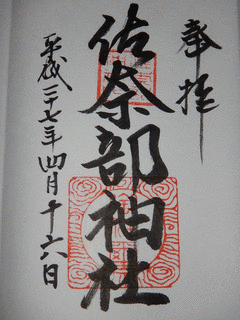 奉拝
佐奈部神社
平成二十七年四月十六日